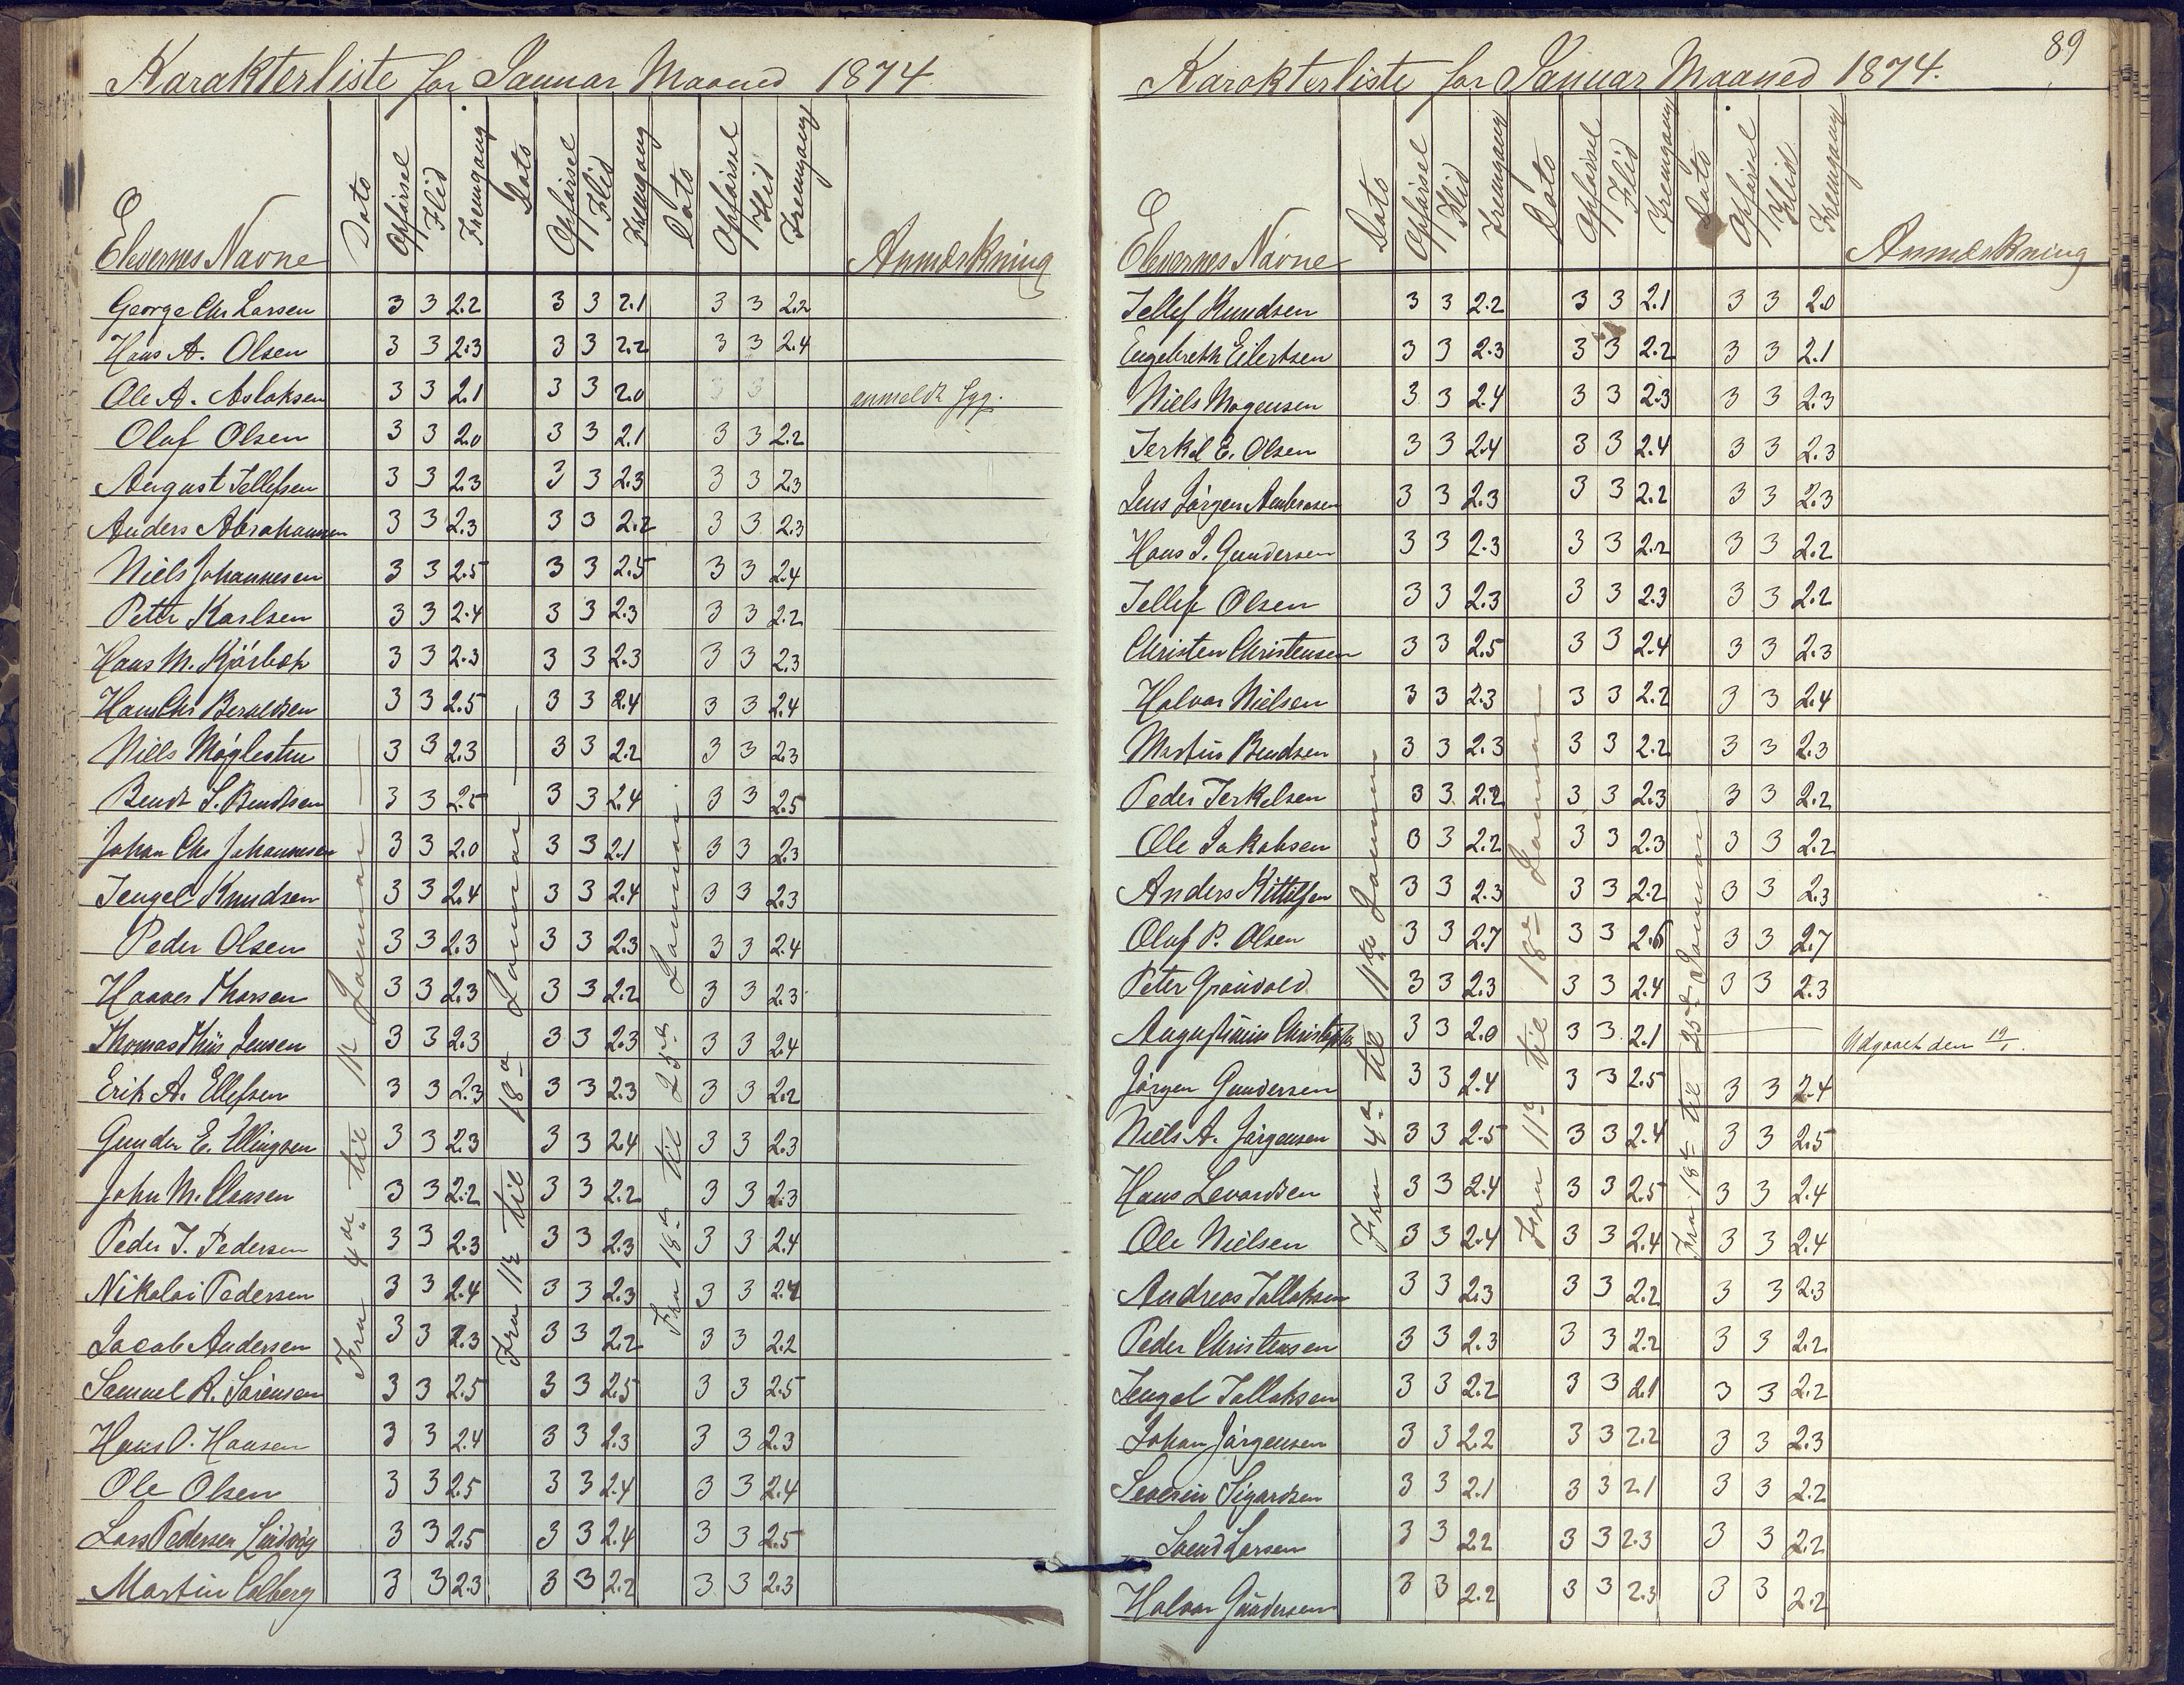 Karakterliste for Januar Maaned 1874
Elevernes Navne Dato Opførsel Flid Fremgang Dato Opførsel Flid Fremgang Dato Opførsel Flid Fremgang Anmærkning
Fra 4de til 11te Januar
Fra 11te til 18de Januar
Fra 18de til 25de Januar
George Chr Larsen 3 3 2.2 3 3 2.1 3 3 2.2
Hans A. Olsen 3 3 2.3 3 3 2.2 3 3 2.4
Ole A. Aslaksen 3 3 2.1 3 3 2.0 3 3 anmeldt syg.
Oluf Olsen 3 3 2.0 3 3 2.1 3 3 2.2
August Tellefsen 3 3 2.3 3 3 2.3 3 3 2.3
Anders Abrahamsen 3 3 2.3 3 3 2.2 3 3 2.3
Niels Johannesen 3 3 2.5 3 3 2.5 3 3 2.4
Petter Karlsen 3 3 2.4 3 3 2.3 3 3 2.2
Hans M. 3 3 2.3 3 3 2.3 3 3 2.3
Hans Chr Beruldsen 3 3 2.5 3 3 2.4 3 3 2.4
Niels Møglestue 3 3 2.3 3 3 2.2 3 3 2.3
Bendt S. Bendtsen 3 3 2.5 3 3 2.4 3 3 2.5
Johan Chr Johannesen 3 3 2.0 3 3 2.1 3 3 2.3
Tengel Knudsen 3 3 2.4 3 3 2.4 3 3 2.3
Peder Olsen 3 3 2.3 3 3 2.3 3 3 2.4
Haaver Thorsen 3 3 2.3 3 3 2.2 3 3 2.3
Thomas Thiis Jensen 3 3 2.3 3 3 2.3 3 3 2.4
Erik A. Ellefsen 3 3 2.3 3 3 2.3 3 3 2.2
Gunder E. Ellingsen 3 3 2.3 3 3 2.4 3 3 2.3
John M. Clausen 3 3 2.2 3 3 2.2 3 3 2.3
Peder T. Pedersen 3 3 2.3 3 3 2.3 3 3 2.4
Nikolai Pedersen 3 3 2.4 3 3 2.3 3 3 2.4
Jacob Andersen 3 3 2.3 3 3 2.2 3 3 2.2
Samuel R. Sørensen 3 3 2.5 3 3 2.5 3 3 2.5
Hans O. Hansen 3 3 2.4 3 3 2.3 3 3 2.3
Ole Olsen 3 3 2.5 3 3 2.4 3 3 2.4
Lars Pedersen Lindvig 3 3 2.5 3 3 2.4 3 3 2.5
Martin Colberg 3 3 2.3 3 3 2.2 3 3 2.3
89
Karakterliste for Januar Maaned 1874.
Elevernes Navne Dato Opførsel Flid Fremgang Dato Opførsel Flid Fremgang Dato Opførsel Flid Fremgang Anmærkning
Fra 4de til 11te Januar
Fra 11te til 18de Januar
Fra 18de til 25de Januar
Tellef Knudsen 3 3 2.2 3 3 2.1 3 3 2.0
Engebreth Eilertsen 3 3 2.3 3 3 2.2 3 3 2.1
Niels Mogensen 3 3 2.4 3 3 2.3 3 3 2.3
Terkel E. Olsen 3 3 2.4 3 3 2.4 3 3 2.3
Jens Jørgen Ambrosen 3 3 2.3 3 3 2.2 3 3 2.3
Hans J. Gundersen 3 3 2.3 3 3 2.2 3 3 2.2
Tellef Olsen 3 3 2.3 3 3 2.3 3 3 2.2
Christen Christensen 3 3 2.5 3 3 2.4 3 3 2.3
Halvor Nielsen 3 3 2.3 3 3 2.2 3 3 2.4
Martin Bendsen 3 3 2.3 3 3 2.2 3 3 2.3
Peder Terkelsen 3 3 2.2 3 3 2.3 3 3 2.2
Ole Jakobsen 3 3 2.2 3 3 2.3 3 3 2.2
Anders Kittilsen 3 3 2.3 3 3 2.2 3 3 2.3
Oluf P. Olsen 3 3 2.7 3 3 2.6 3 3 2.7
Peter Grønvold 3 3 2.3 3 3 2.4 3 3 2.3
Augustinius 3 3 2.0 3 3 2.1 Udgaaet den 19/1.
Jørgen Gundersen 3 3 2.4 3 3 2.5 3 3 2.4
Niels A. Jørgensen 3 3 2.5 3 3 2.4 3 3 2.5
Hans Levordsen 3 3 2.4 3 3 2.5 3 3 2.4
Ole Nielsen 3 3 2.4 3 3 2.4 3 3 2.4
Andreas Tallaksen 3 3 2.3 3 3 2.2 3 3 2.3
Peder Christensen 3 3 2.3 3 3 2.2 3 3 2.2
Tengel Tallaksen 3 3 2.2 3 3 2.1 3 3 2.2
Johan Jørgensen 3 3 2.2 3 3 2.2 3 3 2.3
Severin Sigardsen 3 3 2.1 3 3 2.1 3 3 2.2
Svend Larsen 3 3 2.2 3 3 2.3 3 3 2.2
Halvor Gundersen 3 3 2.2 3 3 2.3 3 3 2.2